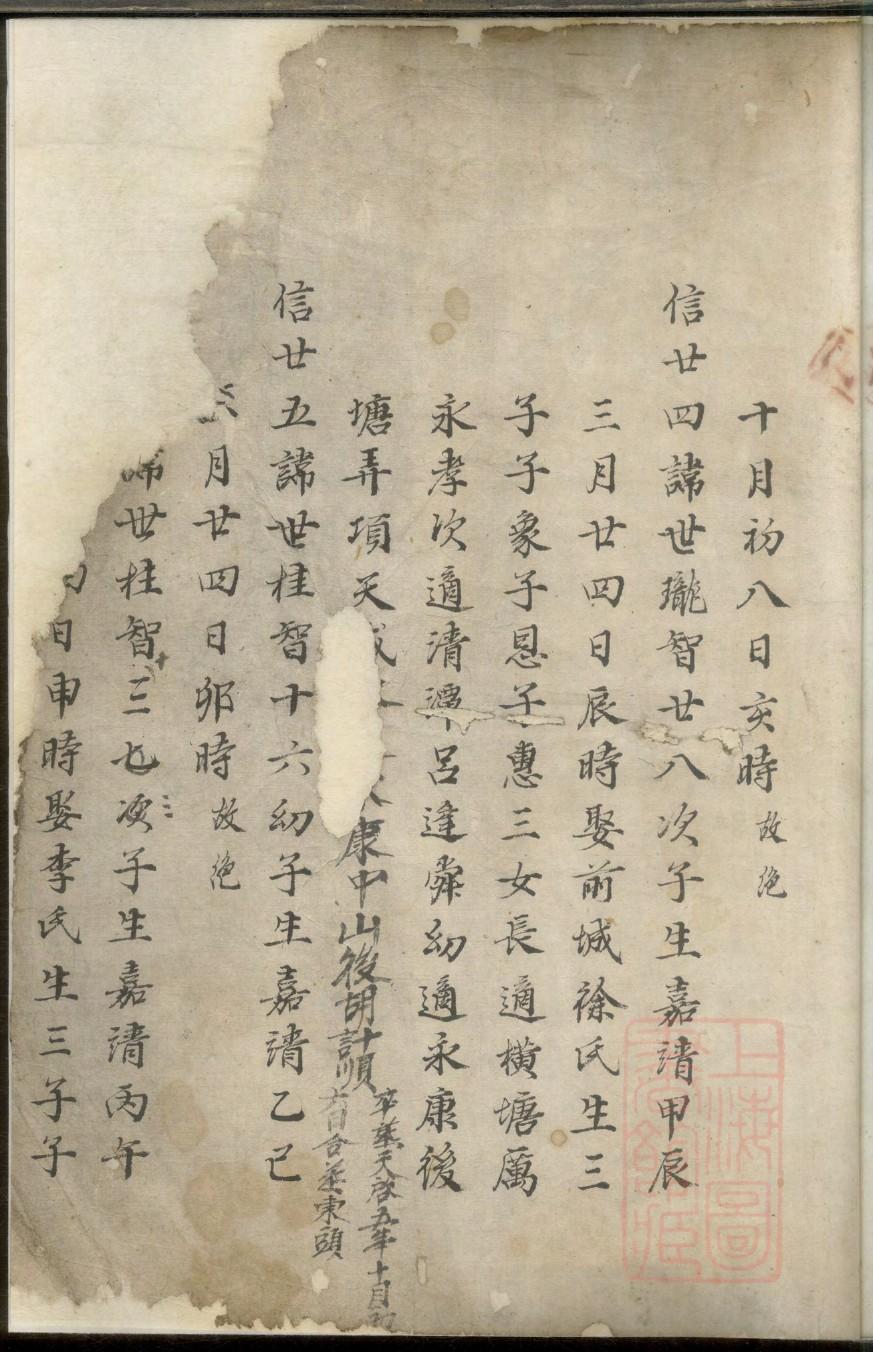 十月初八日亥時故絶
信廿四諱世瓏智廿八次子生嘉靖甲辰
三月廿四日辰時娶前城徐氏生三
子子象子恩子惠三女長適橫塘厲
永孝次適清潭呂逢舜幼適永康後
塘弄項天
康中山後胡計順
卒葬天啓五年十月初
六日合葬東頭
信廿五諱世桂智十六幼子生嘉靖乙巳
月廿四日卯時故絶
諱世柱智三七次子生嘉靖丙午
日申時娶李氏生三子子
上海圖